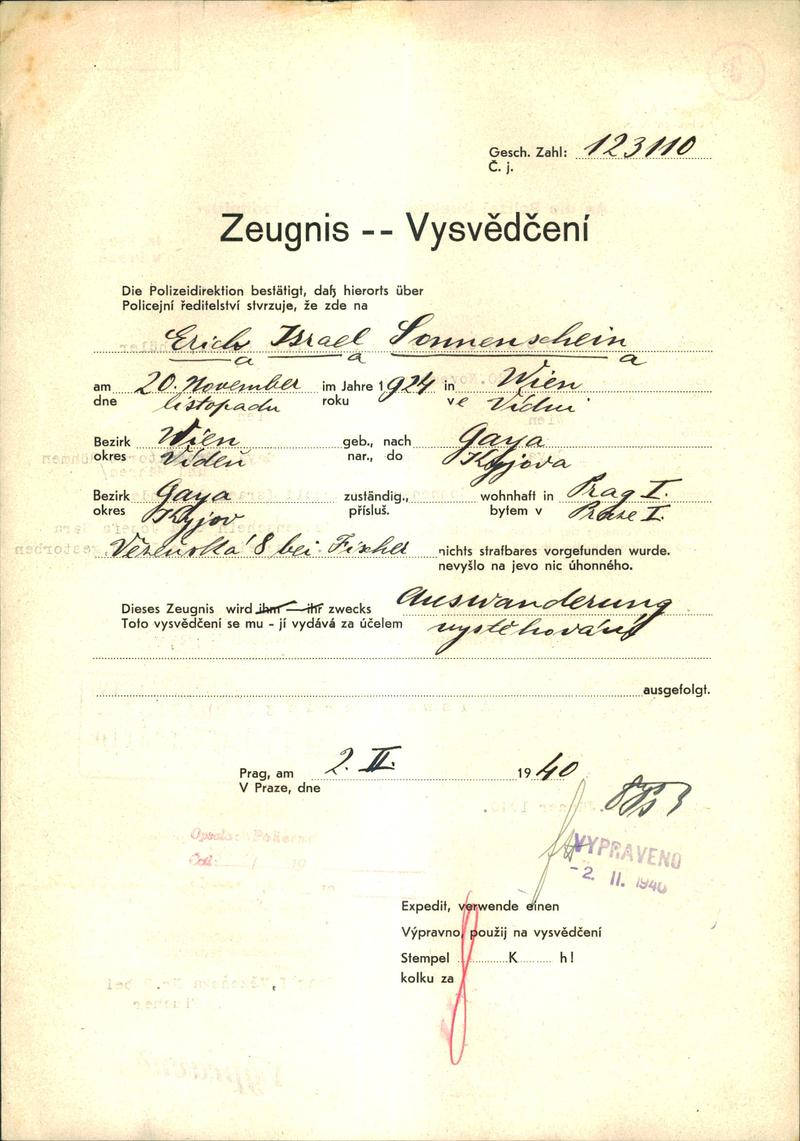 Gesch. Zahl: 123110
Č. j.
Zeugnis -- Vysvědčení
Die Polizeidirektion bestätigt, daß hierorts über
Policejní ředitelství stvrzuje, že zde na
Erich Israel Sonnenschein
a a a
am 20. November im Jahre 1924 in Wien
dne listopadu roku ve Vídni
Bezirk Wien geb., nach Gaya
okres Vídeň nar., do Kyjova
Bezirk Gaya zuständig., wohnhaft in Prag I.
okres Kyjov přísluš. bytem v Praze I.
Vězeňská 8 bei Fischer nichts strafbares vorgefunden wurde.
nevyšlo na jevo nic úhonného.
Dieses Zeugnis wird ihm — ihr zwecks Auswanderung
Toto vysvědčení se mu - jí vydává za účelem vystěhování
ausgefolgt.
Prag, am 2. II. 1940
V Praze, dne
VYPRAVENO
-2. II. 1940
Expedit, verwende einen
Výpravno, použij na vysvědčení
Stempel K h!
kolku za